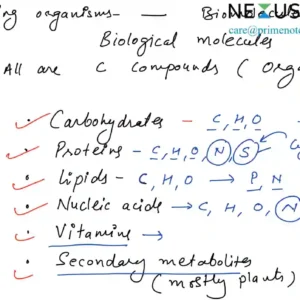 ing organisms — Biom
NEXUS
care@primenote
Biological molecules
All are C compounds (Orga
Carbohydrates - C, H, O -
Proteins - C, H, O, N, S
Lipids - C, H, O → P N
Nucleic acids → C, H, O, N
Vitamins →
Secondary metabolites
(mostly plants)